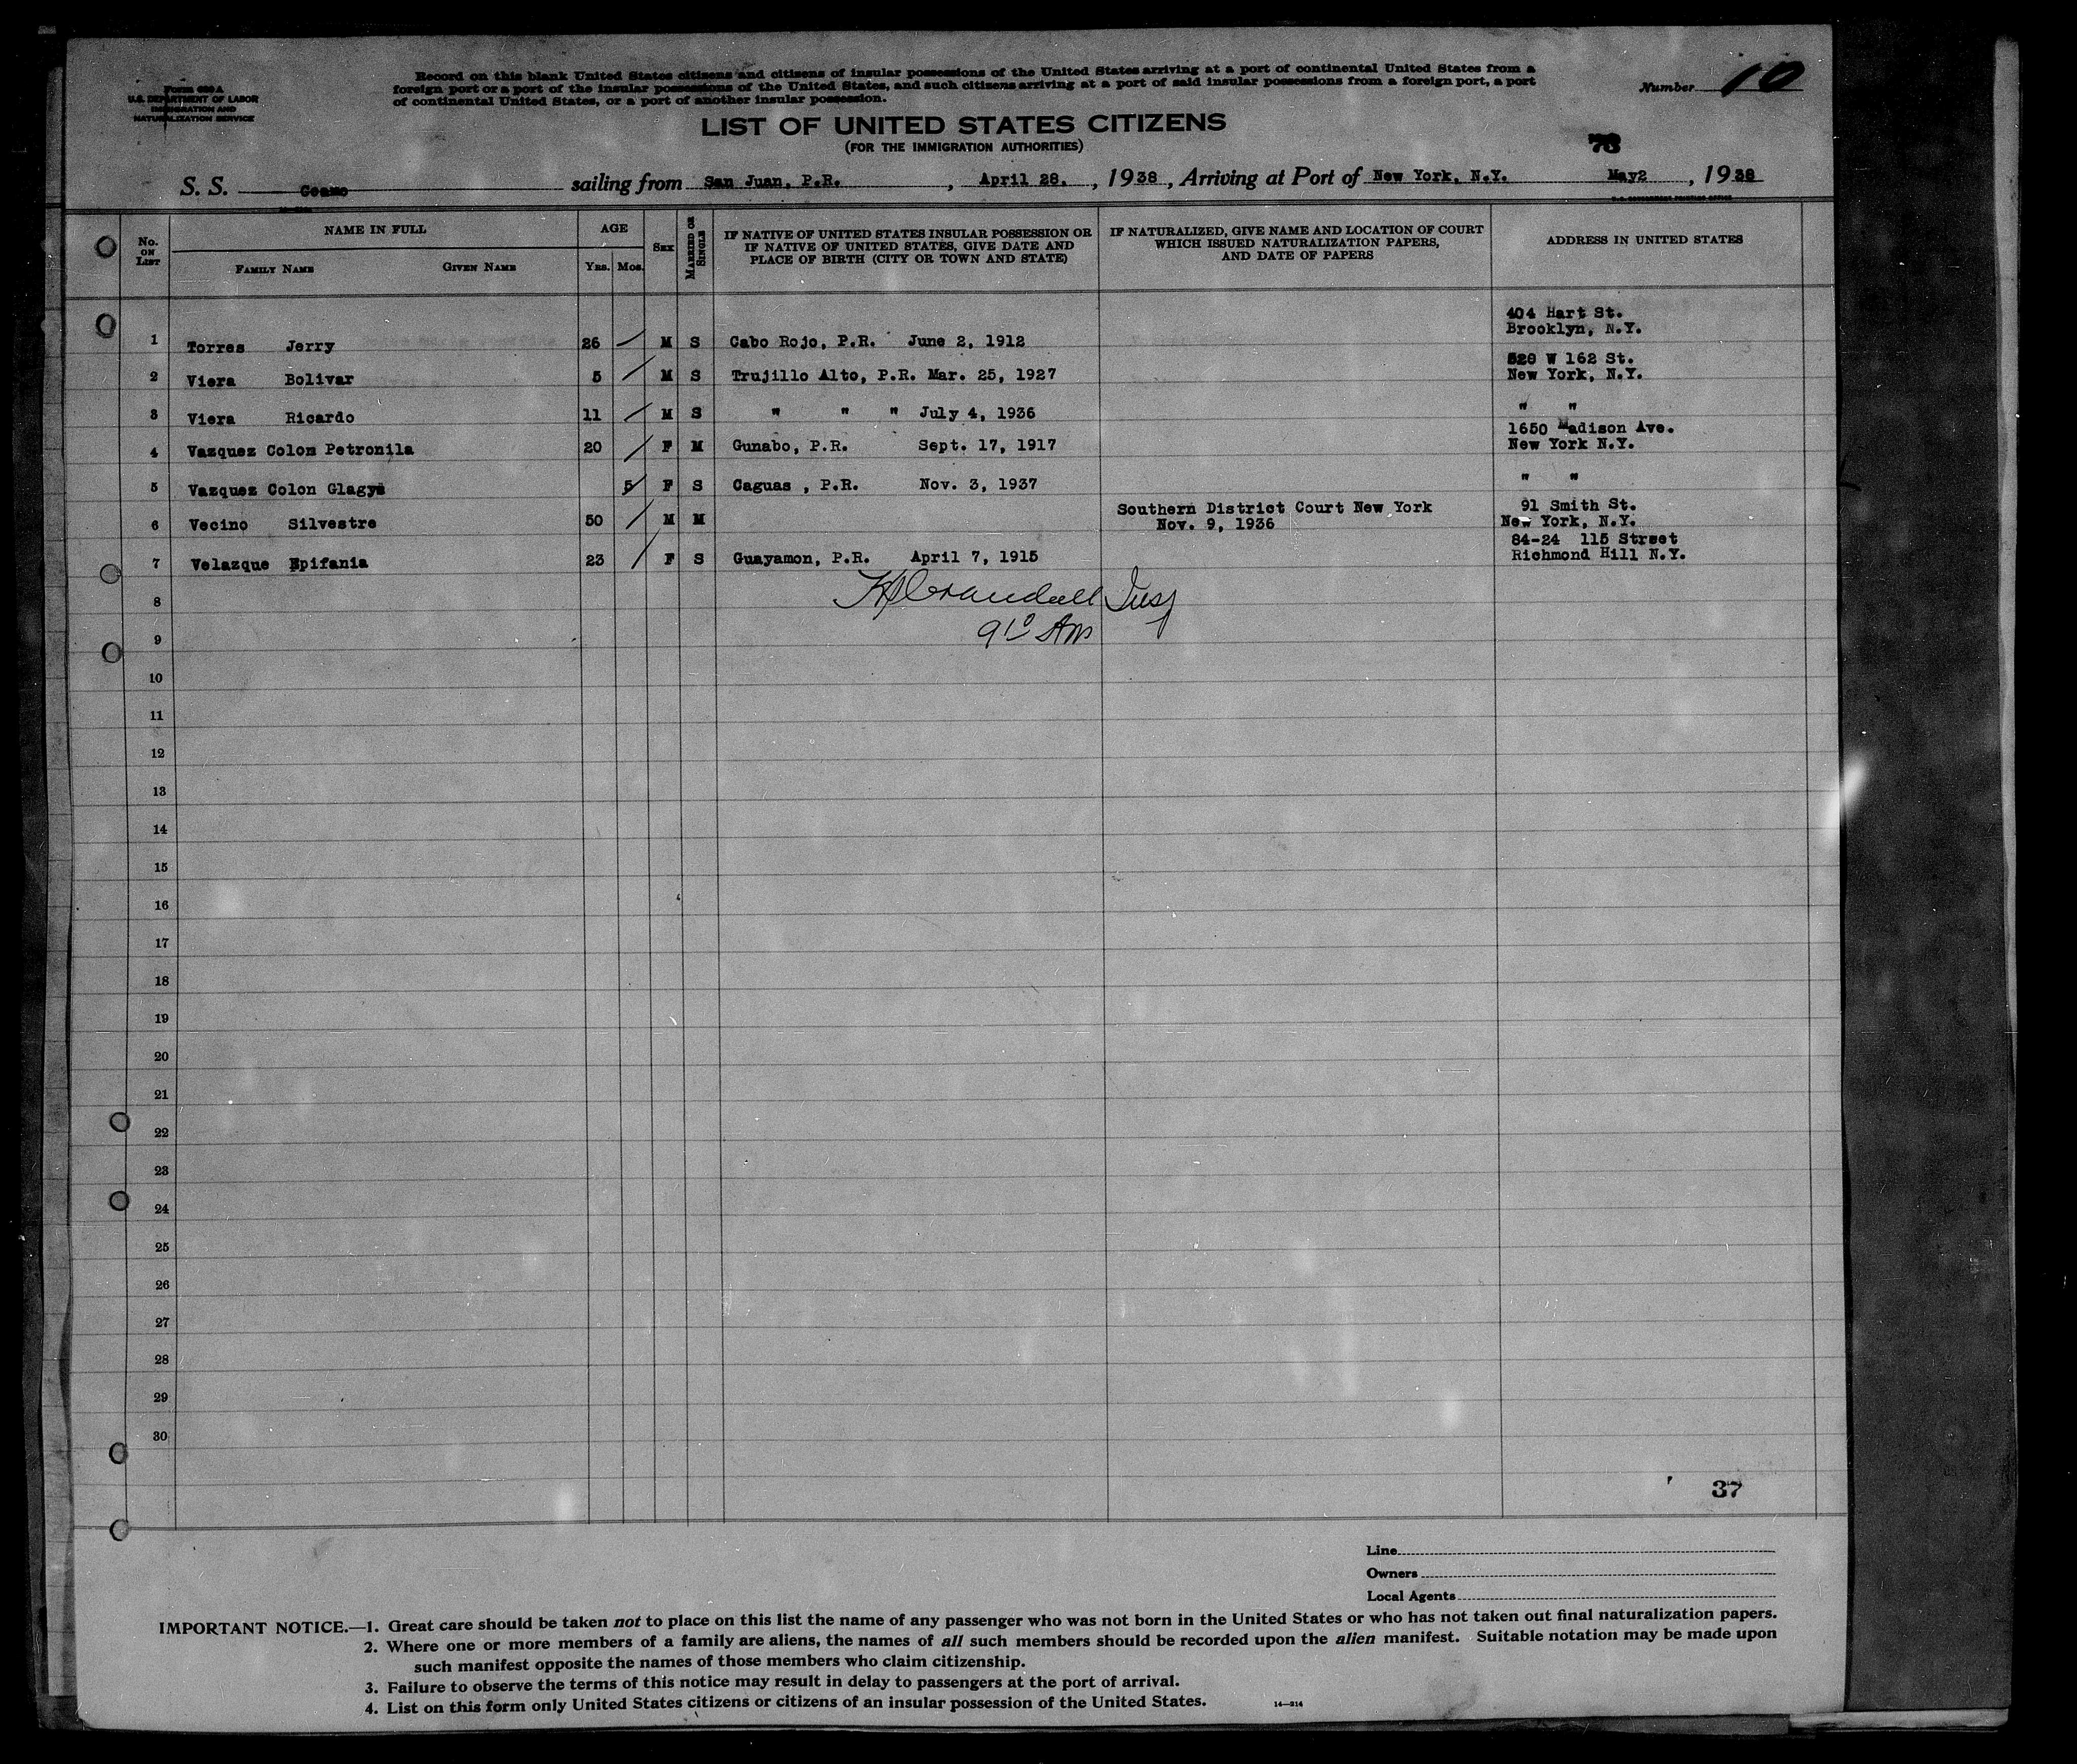 Form 630 A
U.S. DEPARTMENT OF LABOR
IMMIGRATION AND
NATURALIZATION SERVICE
Record on this blank United States citizens and citizens of insular possessions of the United States arriving at a port of continental United States from a
foreign port or a port of the insular possessions of the United States, and such citizens arriving at a port of said insular possessions from a foreign port, a port
of continental United States, or a port of another insular possession.
Number 10
LIST OF UNITED STATES CITIZENS
(FOR THE IMMIGRATION AUTHORITIES)
S. S. Coamo sailing from San Juan, P.R. , April 28, , 1938 , Arriving at Port of New York, N.Y. May2 , 1938
No. ON LIST
NAME IN FULL
FAMILY NAME GIVEN NAME
AGE
YRS. MOS.
SEX
MARRIED OR SINGLE
IF NATIVE OF UNITED STATES INSULAR POSSESSION OR
IF NATIVE OF UNITED STATES, GIVE DATE AND
PLACE OF BIRTH (CITY OR TOWN AND STATE)
IF NATURALIZED, GIVE NAME AND LOCATION OF COURT
WHICH ISSUED NATURALIZATION PAPERS,
AND DATE OF PAPERS
ADDRESS IN UNITED STATES
404 Hart St.
Brooklyn, N.Y.
1 Torres Jerry 26 M S Cabo Rojo, P.R. June 2, 1912
W 162 St.
New York, N.Y.
2 Viera Bolivar 5 M S Trujillo Alto, P.R. Mar. 25, 1927
3 Viera Ricardo 11 M S " " " July 4, 1936 " "
1650 Madison Ave.
New York N.Y.
4 Vazquez Colon Petronila 20 F M Gunabo, P.R. Sept. 17, 1917
5 Vazquez Colon Glagys 5 F S Caguas , P.R. Nov. 3, 1937 " "
Southern District Court New York 91 Smith St.
6 Vecino Silvestre 50 M M Nov. 9, 1936 New York, N.Y.
84-24 115 Street
7 Velazque Epifania 23 F S Guayamon, P.R. April 7, 1915 Richmond Hill N.Y.
8 Crandall Insp
9 AM
10
11
12
13
14
15
16
17
18
19
20
21
22
23
24
25
26
27
28
29
30
37
Line
Owners
Local Agents
IMPORTANT NOTICE.—1. Great care should be taken not to place on this list the name of any passenger who was not born in the United States or who has not taken out final naturalization papers.
2. Where one or more members of a family are aliens, the names of all such members should be recorded upon the alien manifest. Suitable notation may be made upon
such manifest opposite the names of those members who claim citizenship.
3. Failure to observe the terms of this notice may result in delay to passengers at the port of arrival.
4. List on this form only United States citizens or citizens of an insular possession of the United States. 14—314